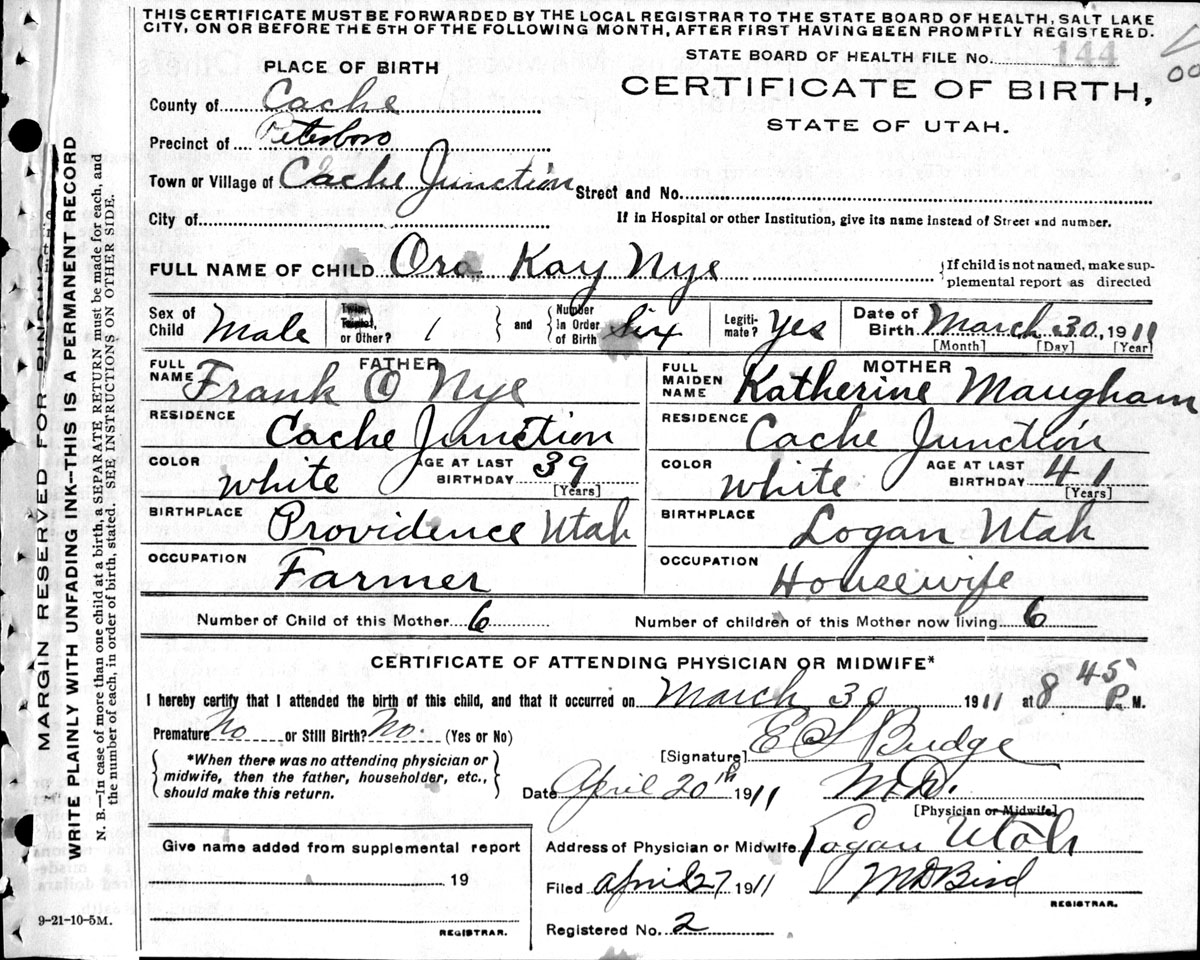 THIS CERTIFICATE MUST BE FORWARDED BY THE LOCAL REGISTRAR TO THE STATE BOARD OF HEALTH, SALT LAKE
CITY, ON OR BEFORE THE 5TH OF THE FOLLOWING MONTH, AFTER FIRST HAVING BEEN PROMPTLY REGISTERED.
STATE BOARD OF HEALTH FILE No. 144
PLACE OF BIRTH
CERTIFICATE OF BIRTH,
STATE OF UTAH.
County of Cache
Precinct of Petersboro
Town or Village of Cache Junction Street and No.
City of If in Hospital or other Institution, give its name instead of Street and number.
FULL NAME OF CHILD Ora Kay Nye {If child is not named, make sup-
plemental report as directed
Sex of Child Male Twin, Triplet, or Other? 1 } and { Number in Order of Birth Six Legiti-mate? Yes Date of Birth March 30, 1911
[Month] [Day] [Year]
FATHER MOTHER
FULL NAME Frank O Nye FULL MAIDEN NAME Katherine Maugham
RESIDENCE Cache Junction RESIDENCE Cache Junction
COLOR white AGE AT LAST BIRTHDAY 39 [Years] COLOR white AGE AT LAST BIRTHDAY 41 [Years]
BIRTHPLACE Providence Utah BIRTHPLACE Logan Utah
OCCUPATION Farmer OCCUPATION Housewife
Number of Child of this Mother 6 Number of children of this Mother now living 6
CERTIFICATE OF ATTENDING PHYSICIAN OR MIDWIFE*
I hereby certify that I attended the birth of this child, and that it occurred on March 30 1911 at 8 45 P. M.
Premature No or Still Birth? No. (Yes or No)
[Signature] E S Budge
*When there was no attending physician or
midwife, then the father, householder, etc.,
should make this return.
Date April 20th 1911 M.D.
[Physician or Midwife]
Give name added from supplemental report
19
REGISTRAR.
Address of Physician or Midwife Logan Utah
Filed April 27 1911 M D Bird
REGISTRAR.
Registered No. 2
9-21-10-5M.
MARGIN RESERVED FOR BINDING
WRITE PLAINLY WITH UNFADING INK--THIS IS A PERMANENT RECORD
N. B.—In case of more than one child at a birth, a SEPARATE RETURN must be made for each, and
the number of each, in order of birth, stated. SEE INSTRUCTIONS ON OTHER SIDE.